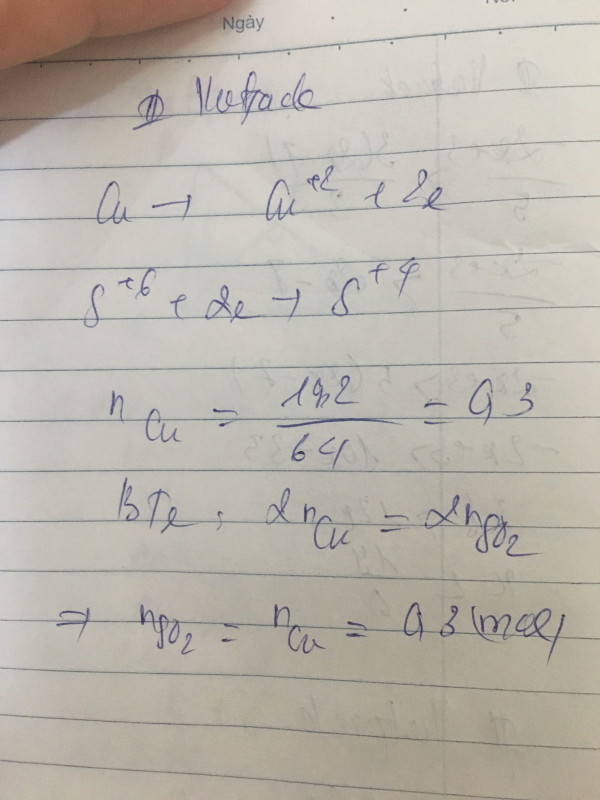 Ngày
Cu → Cu⁺² + 2e
S⁺⁶ + 2e → S⁺⁴
n Cu = 19,2 / 64 = 0,3
BTe : 2nCu = 2nSO₂
⇒ nSO₂ = nCu = 0,3 (mol)